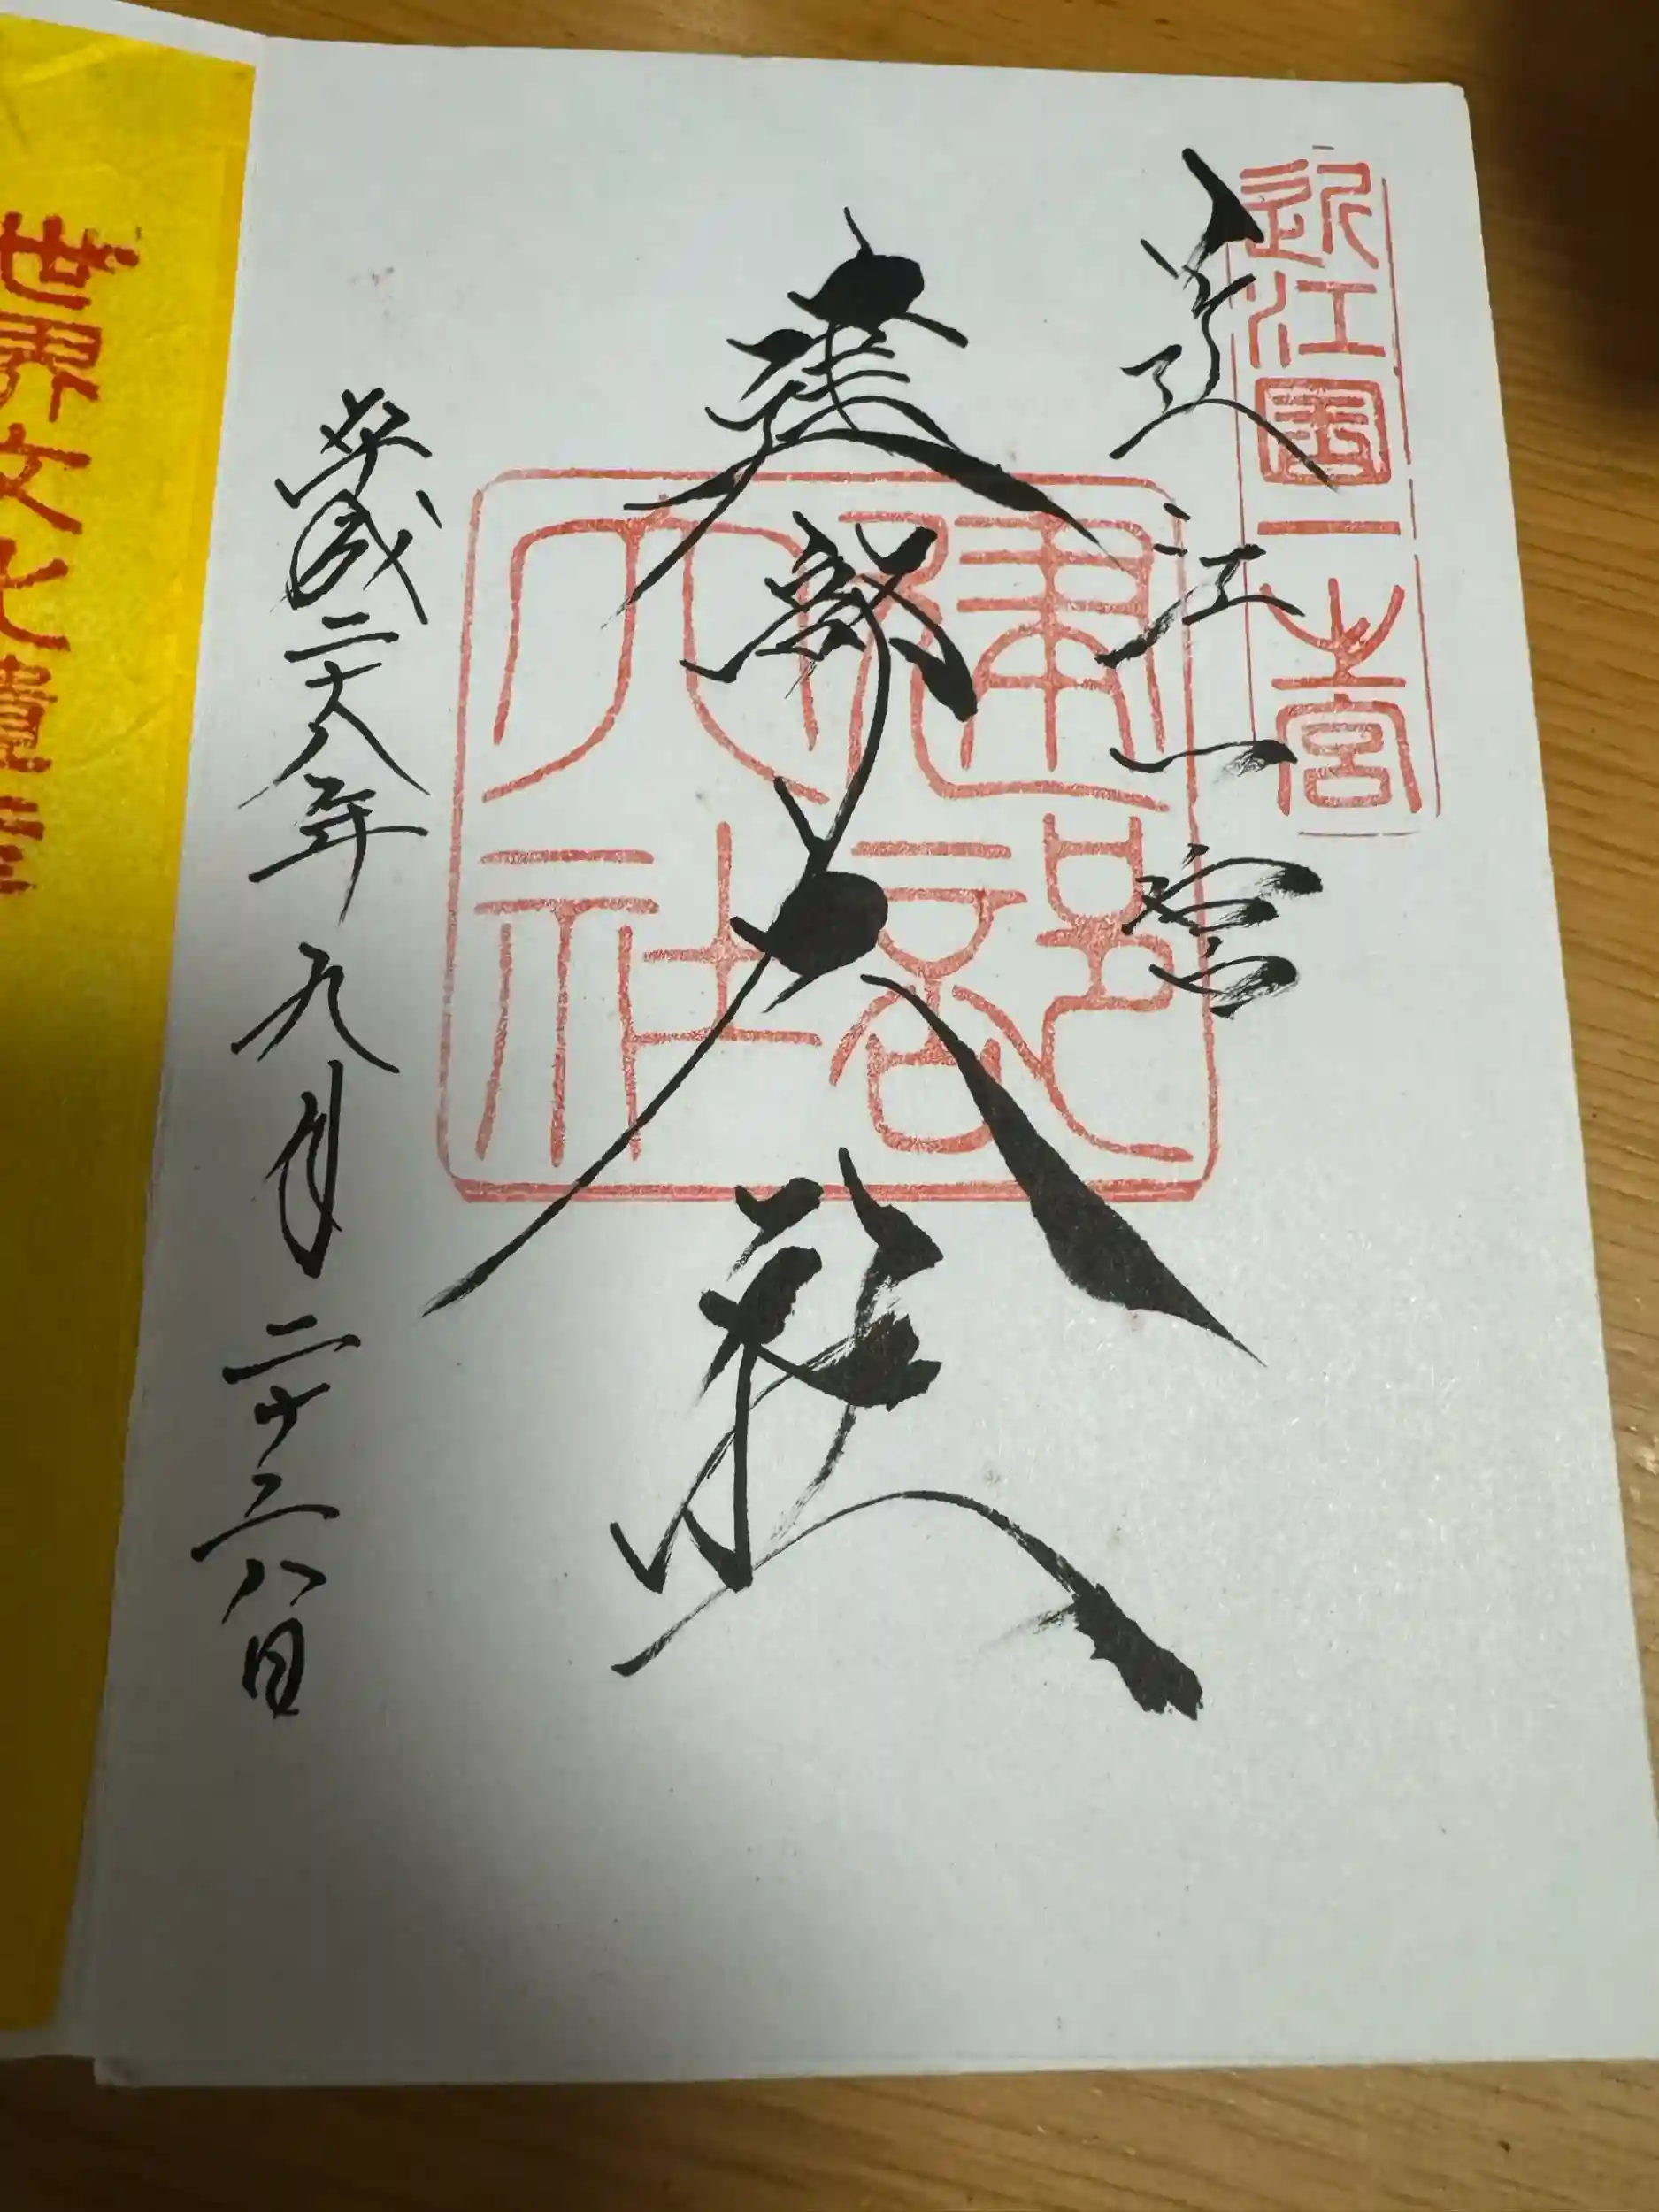 近江國一之宮
近江一宮
建部大社
建部大社
平成二十八年九月二十六日
世界文化遺産